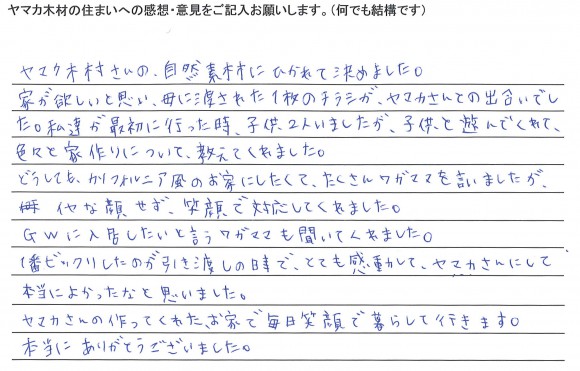 ヤマカ木材の住まいへの感想・意見をご記入お願いします。(何でも結構です)
ヤマカ木材さんの、自然素材にひかれて決めました。
家が欲しいと思い、母に渡された1枚のチラシが、ヤマカさんとの出合いでし
た。私達が最初に行った時、子供、2人いましたが、子供、と遊んでくれて、
色々と家作りについて、教えてくれました。
どうしても、カリフォルニア風のお家にしたくて、たくさんワガママを言いましたが、
イヤな顔せず、笑顔で対応してくれました。
GWに入居したいと言うワガママも聞いてくれました。
1番ビックリしたのが引き渡しの時で、とても感動して、ヤマカさんにして
本当によかったなと思いました。
ヤマカさんの作ってくれた、お家で毎日笑顔で暮らして行きます。
本当にありがとうございました。